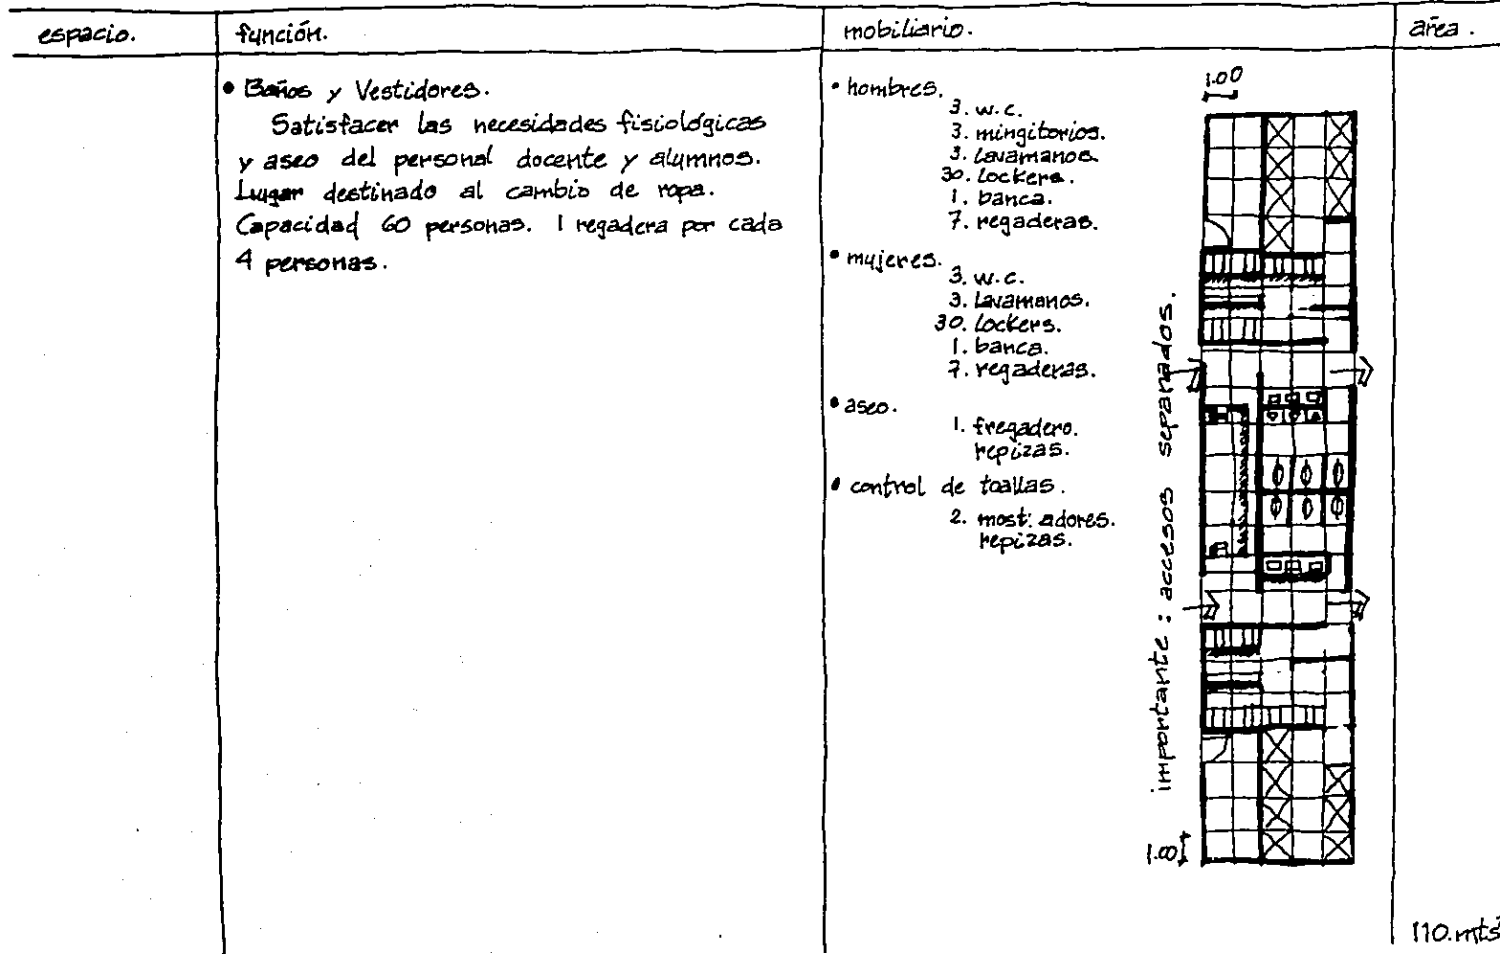 espacio.
función.
mobiliario.
área.
• Baños y Vestidores.
Satisfacer las necesidades fisiológicas
y aseo del personal docente y alumnos.
Lugar destinado al cambio de ropa.
Capacidad 60 personas. 1 regadera por cada
4 personas.
• hombres.
3. w.c.
3. mingitorios.
3. lavamanos.
30. lockers.
1. banca.
7. regaderas.
• mujeres.
3. w.c.
3. lavamanos.
30. lockers.
1. banca.
7. regaderas.
• aseo.
1. fregadero.
repizas.
• control de toallas.
2. most: adores.
repizas.
importante : accesos separados.
1.00
1.00
110.mts²